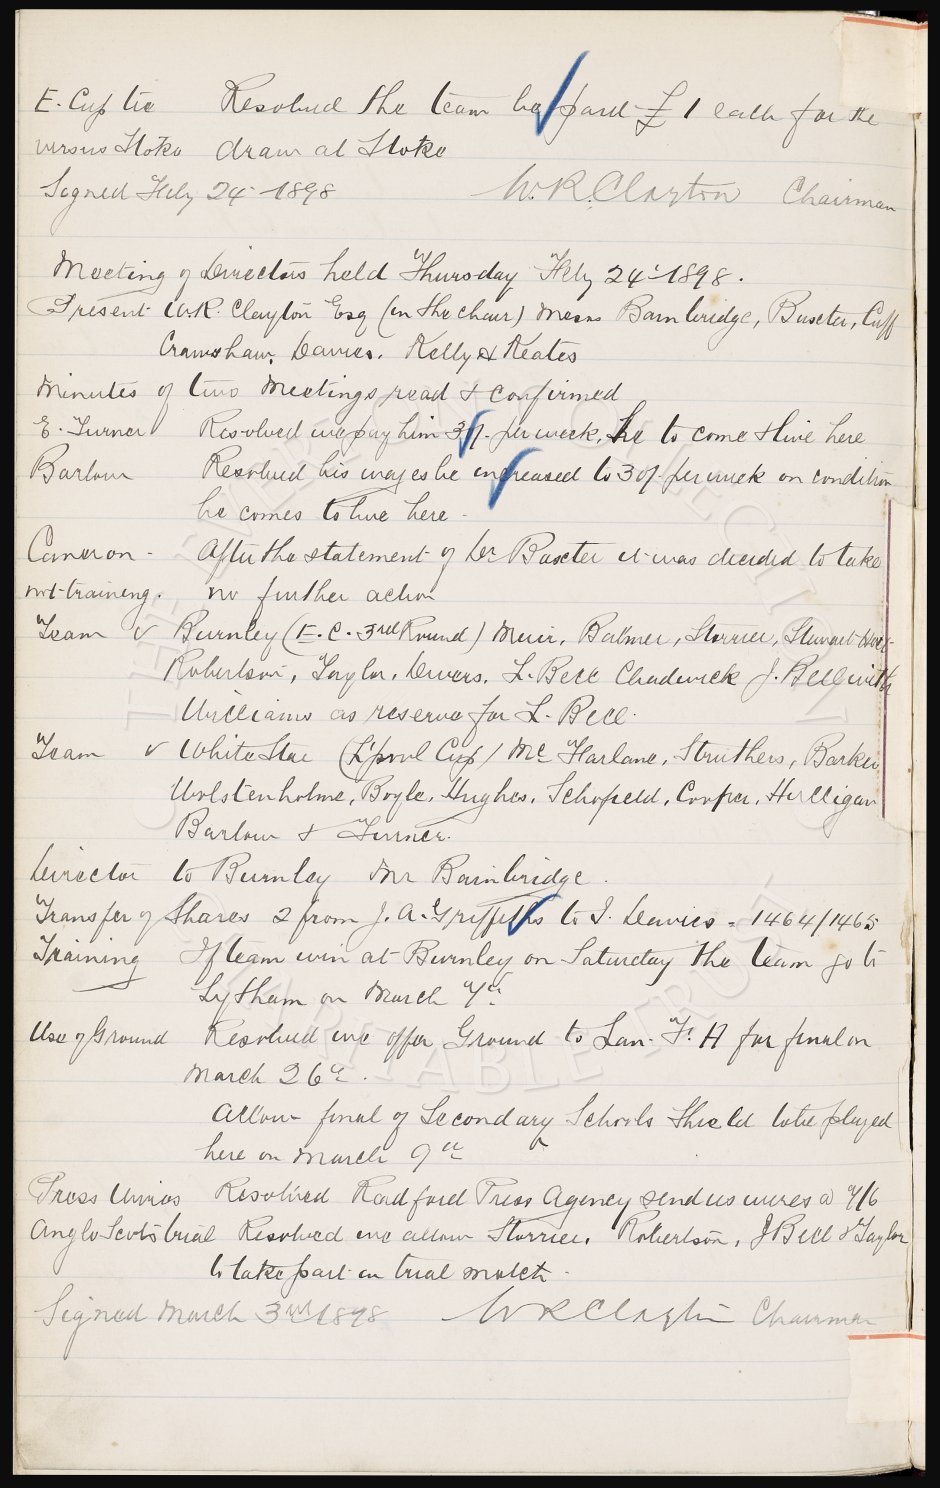 E. Cup tie Resolved the team be paid £1 each for the
versus Stoke draw at Stoke
Signed Feby 24th 1898 W. R. Clayton Chairman
Meeting of Directors held Thursday Feby 24th 1898.
Present W.R. Clayton Esq (in the chair) Messrs Bainbridge, Baxter, Cuff
Crawshaw, Davies, Kelly & Keates
Minutes of two Meetings read & confirmed
E. Turner Resolved we pay him 30/- per week, he to come & live here
Barlow Resolved his wages be increased to 30/- per week on condition
he comes to live here.
Cameron - After the statement of Dr Baxter it was decided to take
not training. no further action
Team v Burnley (E. C. 3rd Round) Muir, Balmer, Storrier, Stewart
Robertson, Taylor, Divers, L. Bell Chadwick J. Bell with
Williams as reserve for L. Bell.
Team v White Star (L'pool Cup) Mc Farlane, Struthers, Barker
Wolstenholme, Boyle, Hughes, Schofield, Cooper, Hilligan
Barlow & Turner.
Director to Burnley Mr Bainbridge.
Transfer of Shares 2 from J. A. Griffiths to I. Davies - 1464/1465
Training If team win at Burnley on Saturday the team go to
Lytham on March 7th.
Use of Ground Resolved we offer Ground to Lan. F. A for final on
March 26th.
Allow final of Secondary Schools Shield to be played
here on March 9th
Press Wires Resolved Radford Press Agency send us wires @ 7/6
Anglo Scots trial Resolved we allow Storrier, Robertson, J Bell & Taylor
to take part in trial match.
Signed March 3rd 1898 W R Clayton Chairman
THE EVERTON COLLECTION
CHARITABLE TRUST